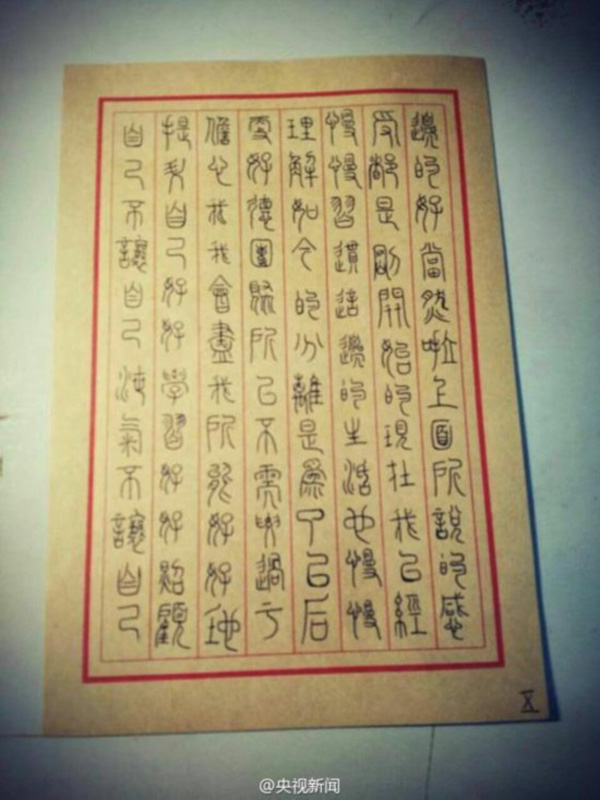 邊的好當然啦上面所說的感
受都是剛開始的現在我已經
慢慢習慣這邊的生活也慢慢
理解如今的分離是為了以后
更好德團聚所以不需要過于
擔心我我會盡我所能好好地
提升自己好好學習好好照顧
自己不讓自己泄氣不讓自己
五
@央视新闻